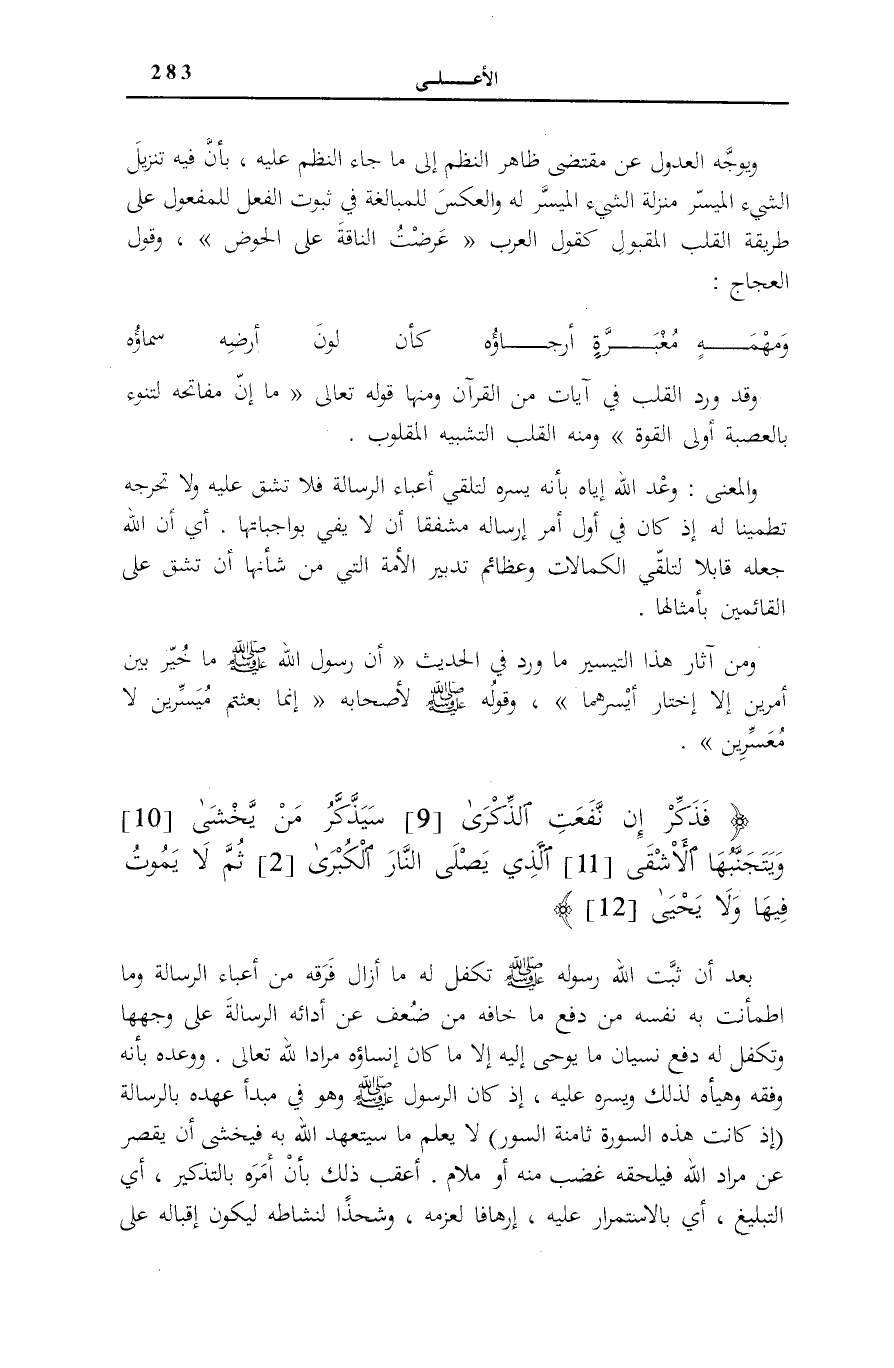 283 الأعـــلـــى
ويوجَّه العدول عن مقتضى ظاهر النظم إلى ما جاء النظم عليه ، بأنَّ فيه تنزيلَ
الشيء الميسّر منزلة الشيء الميسَّر له والعكسَ للمبالغة في ثبوت الفعل للمفعول على
طريقة القلب المقبولِ كقول العرب « عَرضْتُ الناقةَ على الحوض » ، وقول
العجاج :
وَمهْمَـــــهٍ مُغْبَـــــرَّةٍ أرجـــــاؤُه كأن لونَ أرضِه سماؤُه
وقد ورد القلب في آيات من القرآن ومنها قوله تعالى « ما إنّ مفاتحه لتنوء
بالعصبة أولى القوة » ومنه القلب التشبيه المقلوب .
والمعنى : وعْد الله إياه بأنه يسره لتلقي أعباء الرسالة فلا تشق عليه ولا تحرجه
تطمينا له إذ كان في أول أمر إرساله مشفقا أن لا يفي بواجباتها . أي أن الله
جعله قابلا لتلقّي الكمالات وعظائم تدبير الأمة التي من شأنها أن تشق على
القائمين بأمثالها .
ومن آثار هذا التيسير ما ورد في الحديث « أن رسول الله ﷺ ما خُيّر بين
أمرين إلا إختار أيْسرهما » ، وقولُه ﷺ لأصحابه « إنما بعثتم مُيَسِّرين لا
مُعَسِّرِين » .
﴿ فَذَكِّرْ إِن نَّفَعَتِ ٱلذِّكْرَىٰ [9] سَيَذَّكَّرُ مَنْ يَّخْشَىٰ [10]
وَيَتَجَنَّبُهَا ٱلْأَشْقَى [11] ٱلَّذِي يَصْلَى النَّارَ ٱلْكُبْرَىٰ [2] ثُمَّ لَا يَمُوتُ
فِيهَا وَلَا يَحْيَىٰ [12] ﴾
بعد أن ثبَّت الله رسوله ﷺ تكفل له ما أزال فَرَقه من أعباء الرسالة وما
اطمأنت به نفسه من دفع ما خافه من ضُعف عن أدائه الرسالةَ على وجهها
وتكفل له دفع نسيان ما يوحى إليه إلا ما كان إنساؤه مرادا لله تعالى . ووعده بأنه
وفقه وهيأه لذلك ويسره عليه ، إذ كان الرسول ﷺ وهو في مبدأ عهده بالرسالة
(إذ كانت هذه السورة ثامنة السور) لا يعلم ما سيتعهد الله به فيخشى أن يقصر
عن مراد الله فيلحقه غضب منه أو ملام . أعقب ذلك بأنْ أمَرَه بالتذكير ، أي
التبليغ ، أي بالاستمرار عليه ، إرهافا لعزمه ، وشحذًا لنشاطه ليكون إقباله على